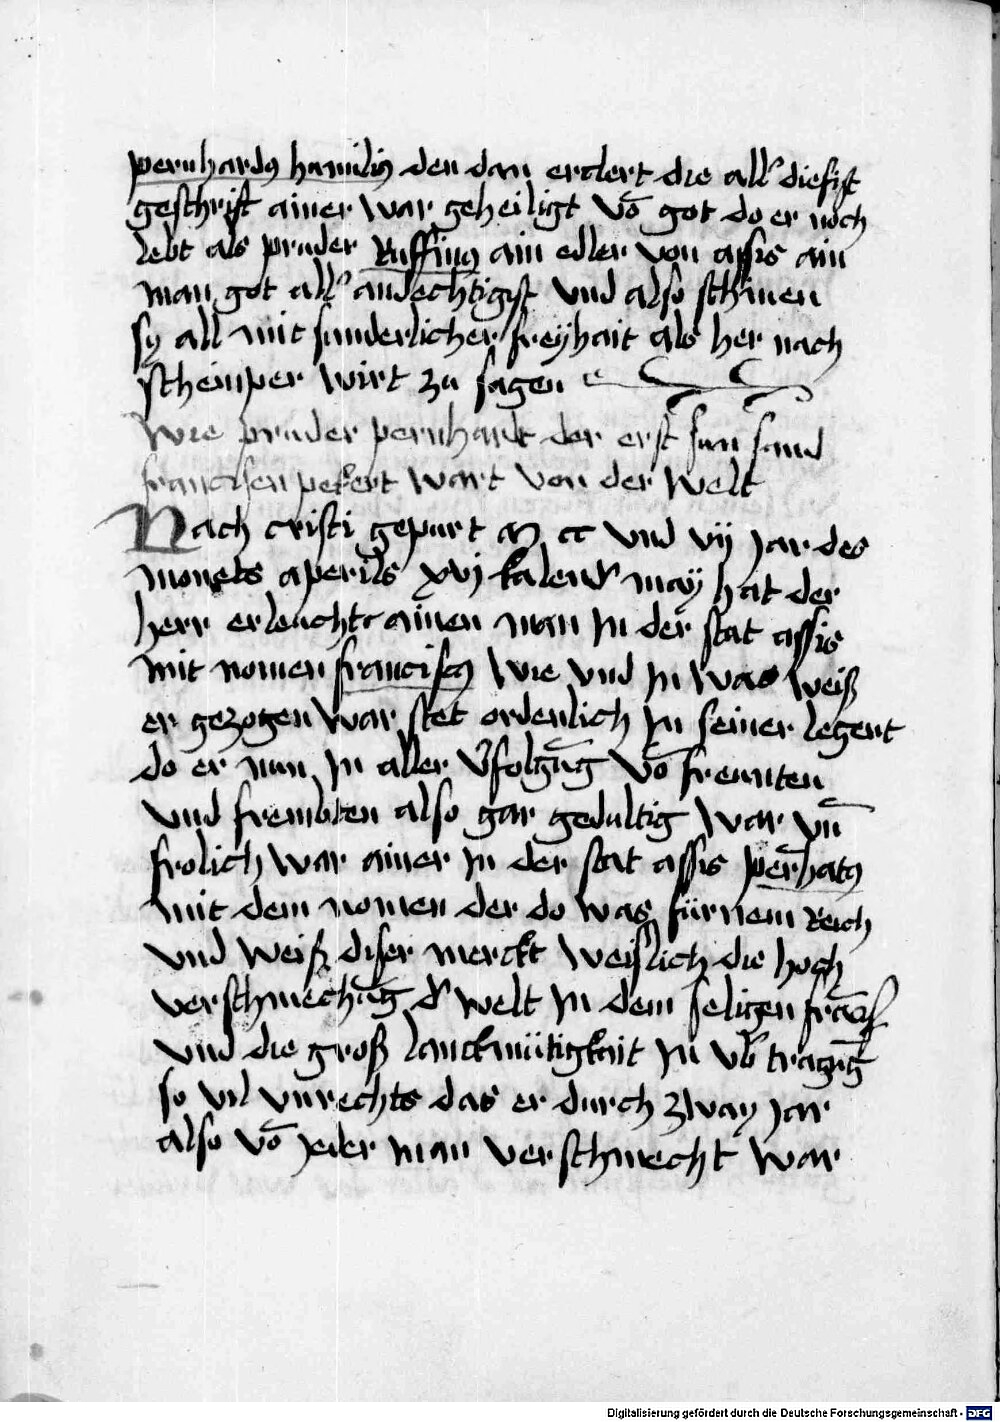 pernhardus hamilis den dan erclert die all' diefist
geschrift ainer war geheiligt vō got do er noch
lebt als pruder Ruffinus ain edler von assis ain
man got all' andechtigist vnd also schinen
sy all mit sunderlicher freyhait als her nach
scheinper wirt zu sagen
Wie pruder pernhart der erst sun sand
francissen pekert wart von der welt
Nach cristi gepurt M cc vnd vij jar des
monets aperils xvj kalend' may hat der
herr erleucht ainen man jn der stat assis
mit nomen franciscus wie vnd jn was weiß
er gezogen war stet ordenlich jn seiner legent
do er nun jn aller v'folgūg vō freunten
vnd frembten also gar gedultig war vn̄
frolich war ainer jn der stat assis perhatus
mit dem nomen der do was fürnem reich
vnd weiß diser merckt weislich die hoch
verschmechūg d' welt jn dem seligen frācis
vnd die groß lanckmütigkait zu vb' tragūg
so vil vnrechts das er durch zway jar
also vō jeder man verschmecht war
Digitalisierung gefördert durch die Deutsche Forschungsgemeinschaft - DFG